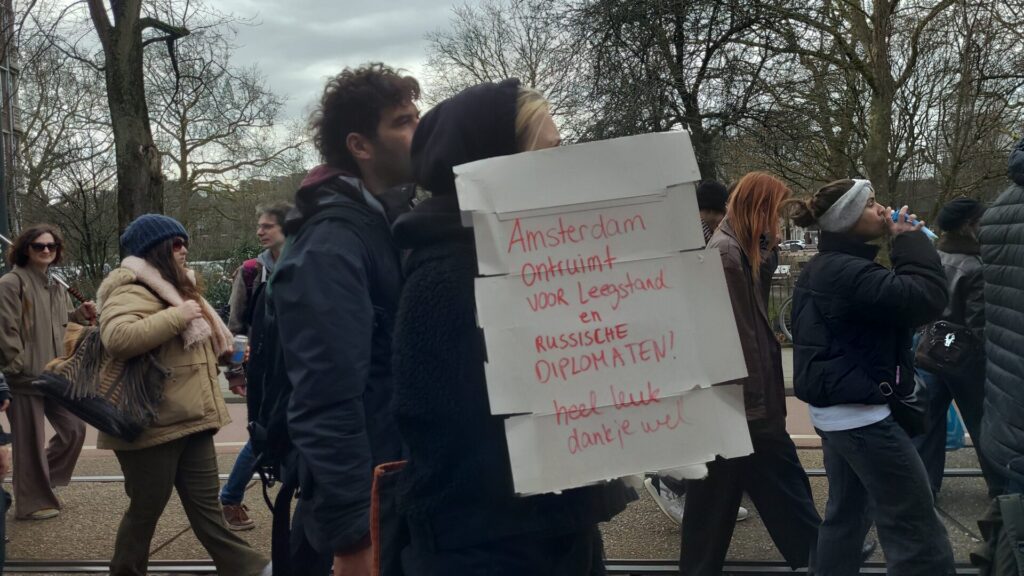 Amsterdam
ontruimt
voor Leegstand
en
RUSSISCHE
DIPLOMATEN!
heel leuk
dankje wel